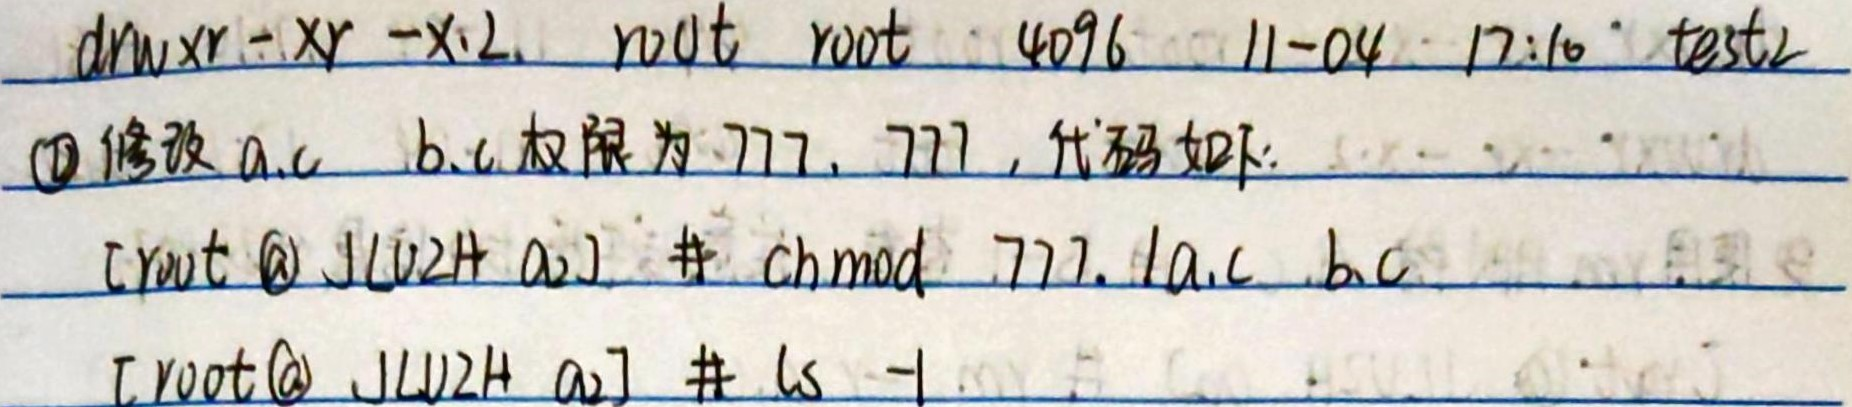 drwxr-xr-x.2. root root 4096 11-04 17:10 test2
① 修改 a.c b.c 权限为 777、777，代码如下:
[root @ JLUZH a2] # chmod 777. /a.c b.c
[root @ JLUZH a2] # ls -l